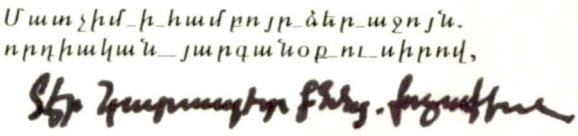 Մատչիմ ի համբոյր ձեր աջոյն.
որդիական յարգանօք ու սիրով,
Տէր